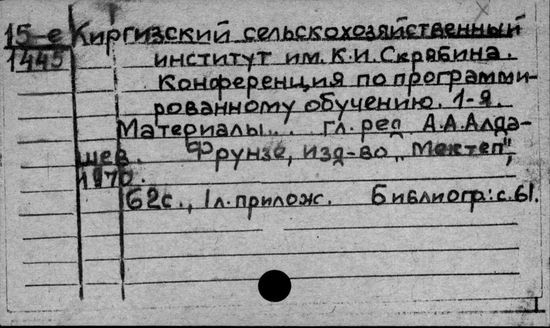 15-е Киргизский сельскохозяйственный
1445 институт им. К.И. Скрябина.
Конференция по программи-
рованному обучению. 1-я.
Материалы... гл. ред А.А. Алда-
шев. Фрунзе, изд-во „Мектеп",
1970.
62с., 1л. прилож. Библиогр: с. 61.